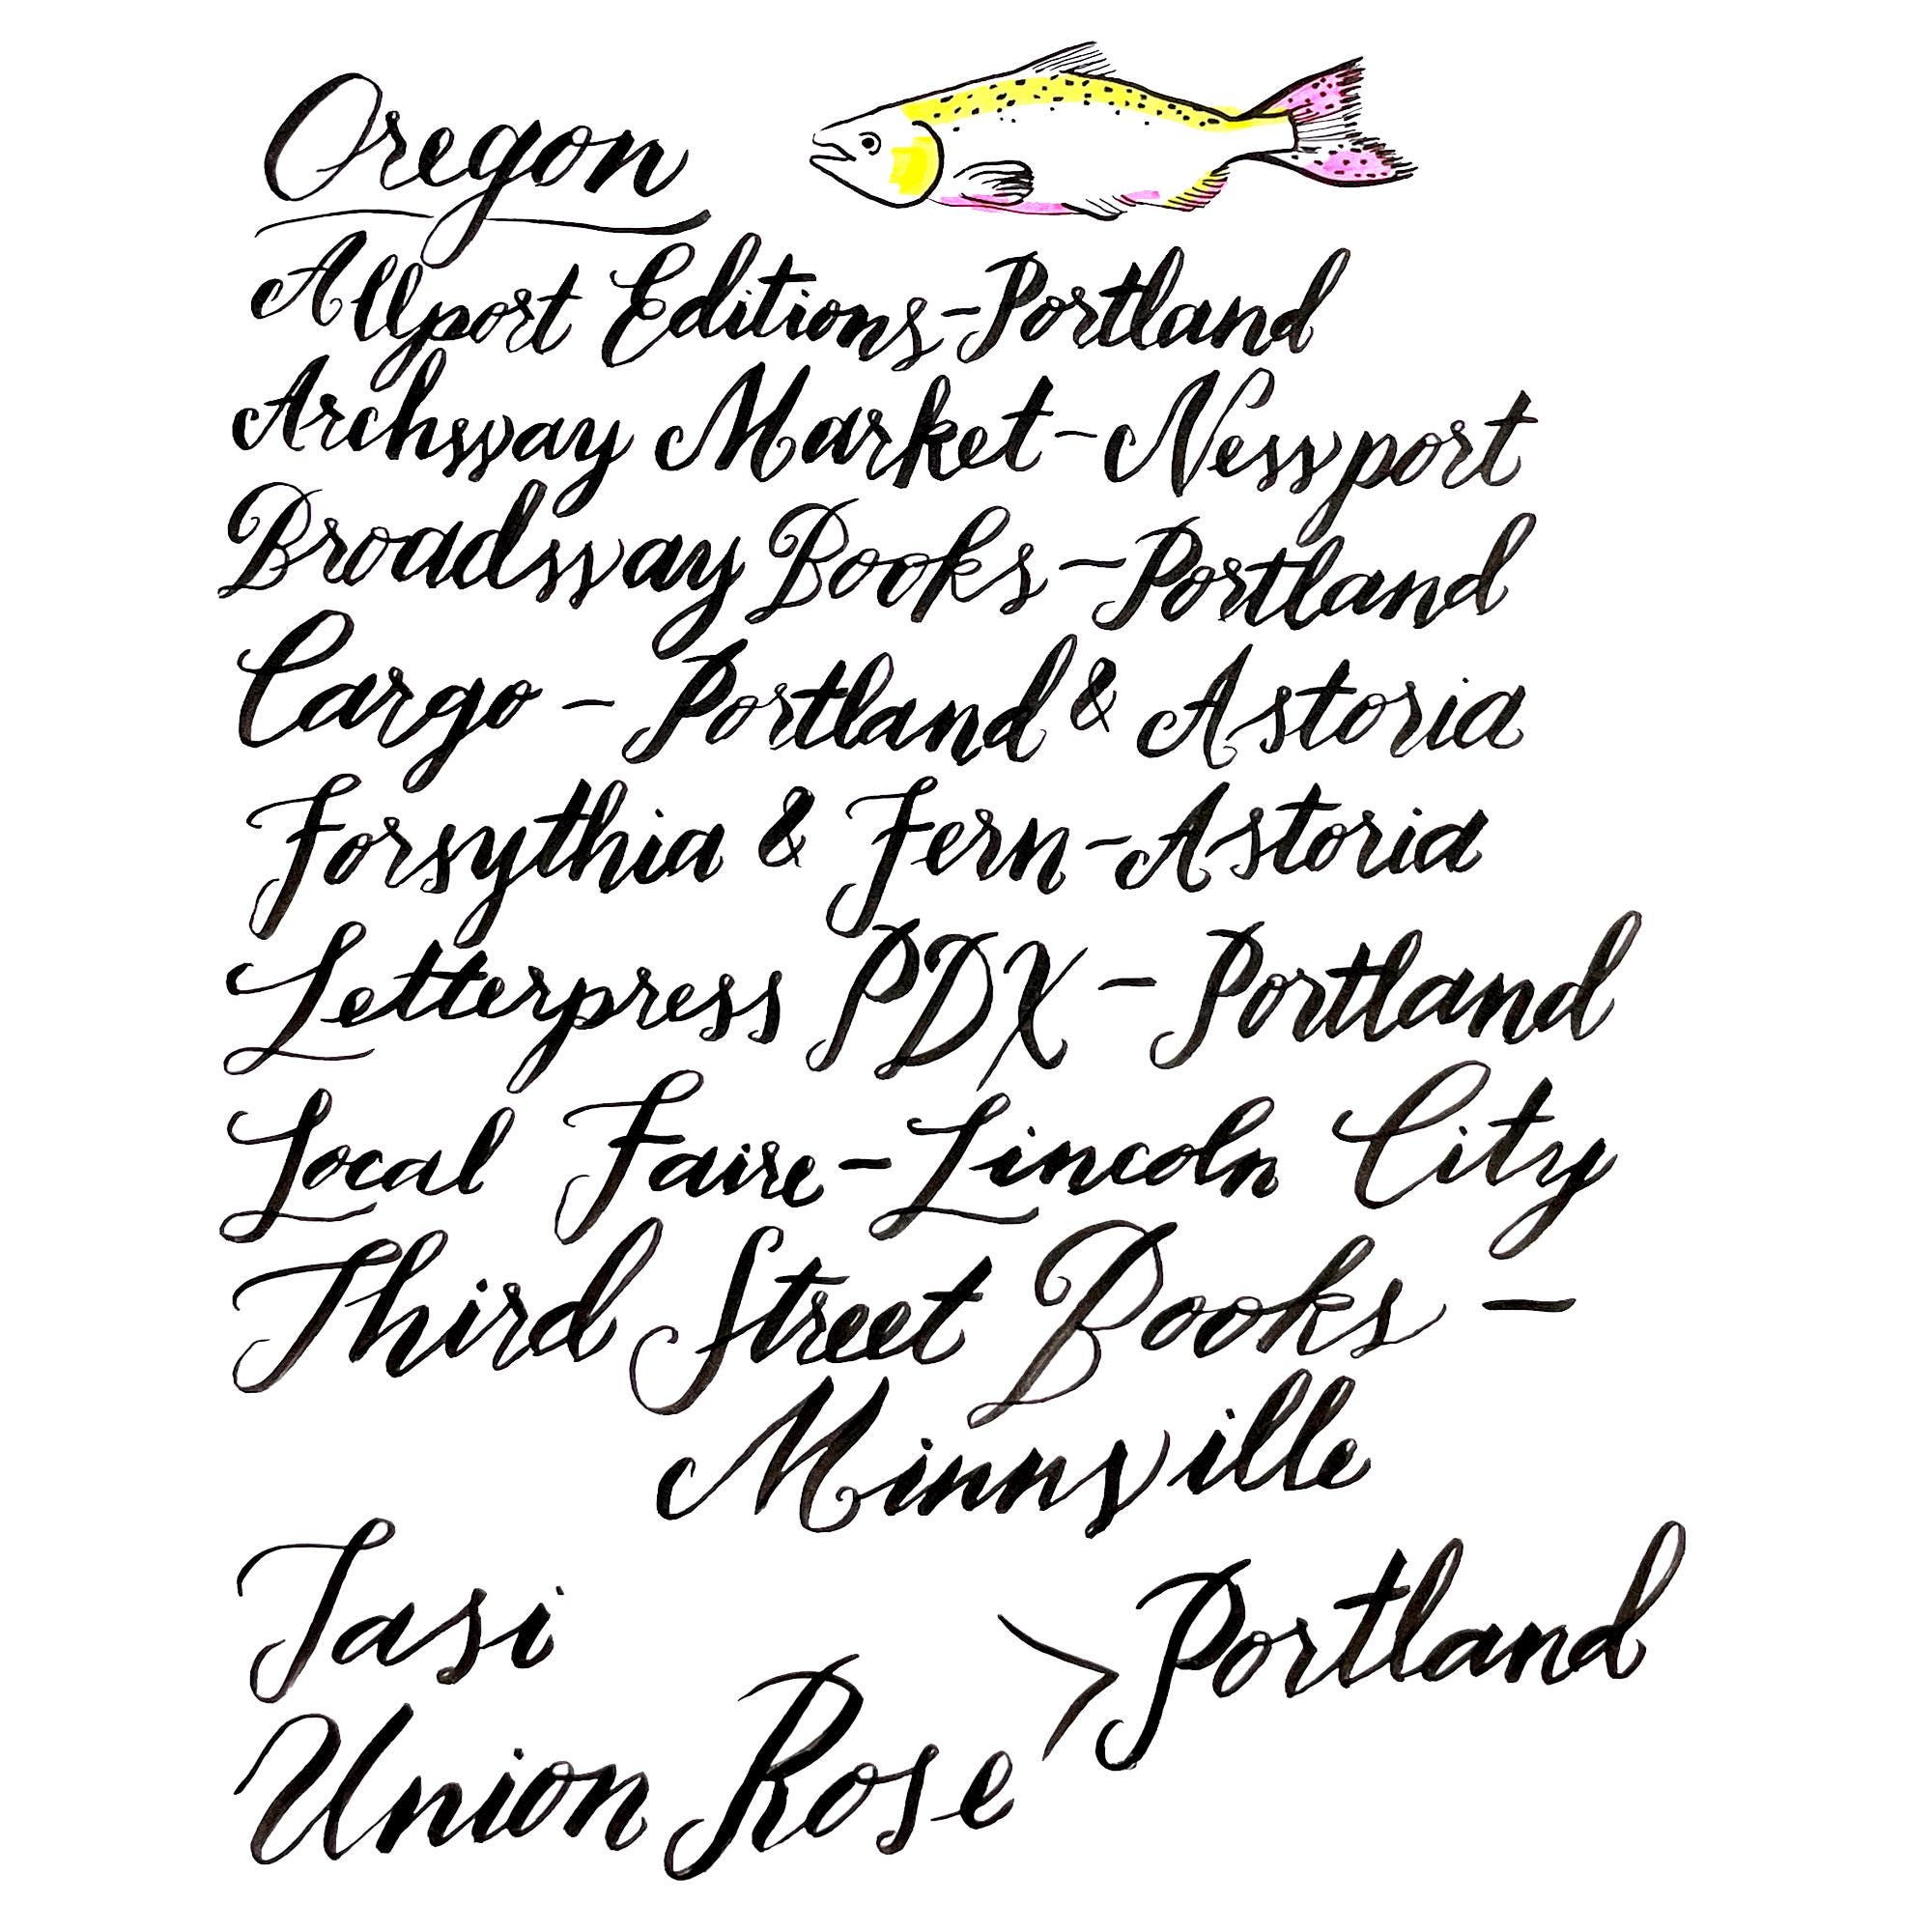 Oregon
Allport Editions - Portland
Archway Market - Newport
Broadway Books - Portland
Cargo - Portland & Astoria
Forsythia & Fern - Astoria
Letterpress PDX - Portland
Local Faire - Lincoln City
Third Street Books -
Minnville
Tasi
Union Rose
Portland